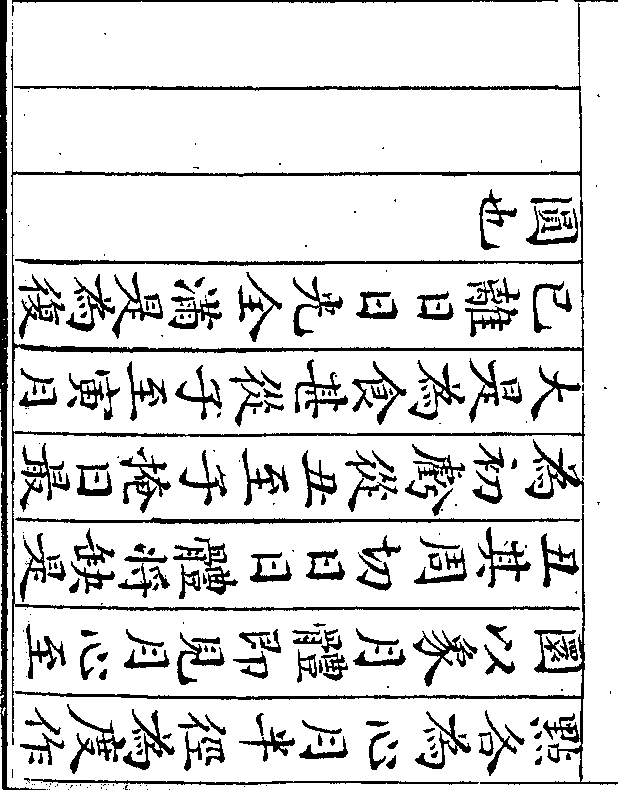 點各為心月半徑為度作
圜以象月體即見月心至
丑其周切日日體將缺是
為初虧從丑至子掩日最
大是為食甚從子至寅月
已離日日光全滿是為復
圓也